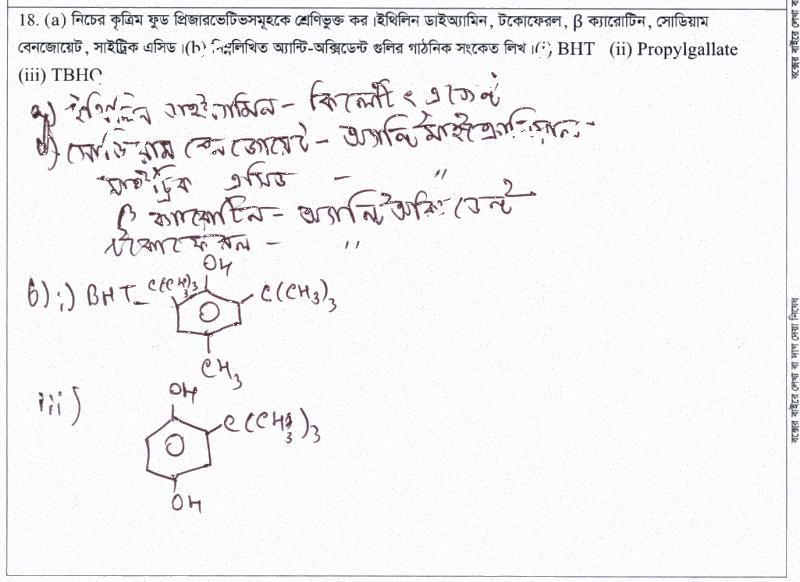 18. (a) নিচের কৃত্রিম ফুড প্রিজারভেটিভসমূহকে শ্রেণিভুক্ত কর।ইথিলিন ডাইঅ্যামিন, টকোফেরল, β ক্যারোটিন, সোডিয়াম
বেনজোয়েট, সাইট্রিক এসিড।(b) নিম্নলিখিত অ্যান্টি-অক্সিডেন্ট গুলির গাঠনিক সংকেত লিখ।(i) BHT (ii) Propylgallate
(iii) TBHQ
a) ইথিলিন ডাইঅ্যামিন - কিলেটিং এজেন্ট
সোডিয়াম বেনজোয়েট - অ্যান্টি মাইক্রোবিয়াল
সাইট্রিক এসিড - "
β ক্যারোটিন - অ্যান্টি অক্সিডেন্ট
টকোফেরল - "
OH
b) i) BHT - C(CH3)3 C(CH3)3
CH3
OH
iii) C(CH3)3
OH
বক্সের বাইরে লেখা বা দাগ দেয়া নিষেধ
বক্সের বাইরে লেখা ব